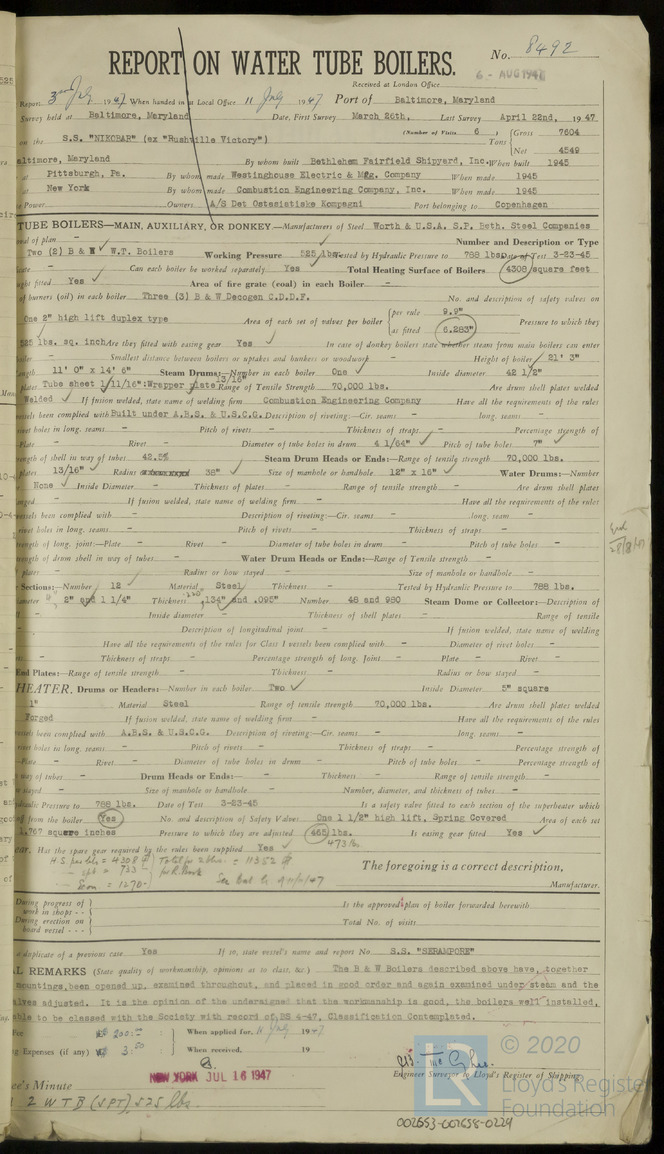 REPORT ON WATER TUBE BOILERS.
No. 8492
Received at London Office 6 - AUG 194
Report 3rd July 1947 When handed in at Local Office 11 July 1947 Port of Baltimore, Maryland
Survey held at Baltimore, Maryland Date, First Survey March 26th, Last Survey April 22nd, 1947
on the S.S. "NIECBAR" (ex "Rushville Victory") (Number of Visits 6) Tons Gross 7604
Net 4549
altimore, Maryland By whom built Bethlehem Fairfield Shipyard, Inc. When built 1945
at Pittsburgh, Pa. By whom made Westinghouse Electric & Mfg. Company When made 1945
at New York By whom made Combustion Engineering Company, Inc. When made 1945
Power Owners A/S Det Ostasiatiske Kompagni Port belonging to Copenhagen
TUBE BOILERS—MAIN, AUXILIARY, OR DONKEY.—Manufacturers of Steel Worth & U.S.A. S.P. Beth. Steel Companies
val of plan - Number and Description or Type
Two (2) B & W W.T. Boilers Working Pressure 525 lbs. Tested by Hydraulic Pressure to 788 lbs. Date of Test 3-23-45
Can each boiler be worked separately Yes Total Heating Surface of Boilers 4308 square feet
ght fitted Yes Area of fire grate (coal) in each Boiler -
of burners (oil) in each boiler Three (3) B & W Decogen C.D.D.F. No. and description of safety valves on
One 2" high lift duplex type Area of each set of valves per boiler per rule 9.9"
as fitted 6.283" Pressure to which they
525 lbs. sq. inch Are they fitted with easing gear Yes In case of donkey boilers state whether steam from main boilers can enter
boiler - Smallest distance between boilers or uptakes and bunkers or woodwork - Height of boiler 21' 3"
ength 11' 0" x 14' 6" Steam Drums:—Number in each boiler One Inside diameter 42 1/2"
plates Tube sheet 1 11/16":Wrapper plate 13/16" Range of Tensile Strength 70,000 lbs. Are drum shell plates welded
Welded If fusion welded, state name of welding firm Combustion Engineering Company Have all the requirements of the rules
ssels been complied with Built under A.B.S. & U.S.C.G. Description of riveting:—Cir. seams - long. seams -
rivet holes in long. seams - Pitch of rivets - Thickness of straps - Percentage strength of
-Plate - Rivet - Diameter of tube holes in drum 4 1/64" Pitch of tube holes 7"
rength of shell in way of tubes 42.5% Steam Drum Heads or Ends:—Range of tensile strength 70,000 lbs.
plates 13/16" Radius 38" Size of manhole or handhole 12" x 16" Water Drums:—Number
None Inside Diameter - Thickness of plates - Range of tensile strength - Are drum shell plates
anged - If fusion welded, state name of welding firm - Have all the requirements of the rules
ssels been complied with - Description of riveting:—Cir. seams - long. seam -
rivet holes in long. seams - Pitch of rivets - Thickness of straps -
rength of long. joint:—Plate - Rivet - Diameter of tube holes in drum - Pitch of tube holes -
rength of drum shell in way of tubes - Water Drum Heads or Ends:—Range of Tensile strength -
plates - Radius or how stayed - Size of manhole or handhole -
r Sections:—Number 12 Material Steel Thickness - Tested by Hydraulic Pressure to 788 lbs.
ameter 2" and 1 1/4" Thickness .134" and .095" Number 48 and 980 Steam Dome or Collector:—Description of
Inside diameter - Thickness of shell plates - Range of tensile
Description of longitudinal joint - If fusion welded, state name of welding
Have all the requirements of the rules for Class I vessels been complied with - Diameter of rivet holes -
Thickness of straps - Percentage strength of long. Joint - Plate - Rivet -
End Plates:—Range of tensile strength - Thickness - Radius or how stayed -
HEATER. Drums or Headers:—Number in each boiler Two Inside Diameter 5" square
1" Material Steel Range of tensile strength 70,000 lbs. Are drum shell plates welded
Forged If fusion welded, state name of welding firm - Have all the requirements of the rules
ssels been complied with A.B.S. & U.S.C.G. Description of riveting:—Cir. seams - long. seams -
rivet holes in long. seams - Pitch of rivets - Thickness of straps - Percentage strength of
-Plate - Rivet - Diameter of tube holes in drum - Pitch of tube holes - Percentage strength of
way of tubes - Drum Heads or Ends:— - Thickness - Range of tensile strength -
stayed - Size of manhole or handhole - Number, diameter, and thickness of tubes -
draulic Pressure to 788 lbs. Date of Test 3-23-45 Is a safety valve fitted to each section of the superheater which
off from the boiler Yes No. and description of Safety Valves One 1 1/2" high lift, Spring Covered Area of each set
1.767 square inches Pressure to which they are adjusted 465 lbs. Is easing gear fitted Yes
473 lbs.
ear. Has the spare gear required by the rules been supplied Yes
H.S. per blr = 4308
The foregoing is a correct description,
Manufacturer.
During progress of work in shops - - Is the approved plan of boiler forwarded herewith
During erection on board vessel - - - Total No. of visits
a duplicate of a previous case Yes If so, state vessel's name and report No. S.S. "SERAMPORE"
L REMARKS (State quality of workmanship, opinions as to class, &c.) The B & W Boilers described above have, together
mountings, been opened up, examined throughout, and placed in good order and again examined under steam and the
alves adjusted. It is the opinion of the undersigned that the workmanship is good, the boilers well installed,
able to be classed with the Society with record of BS 4-47, Classification Contemplated.
Fee $ 200: When applied for, 11 July 1947
g Expenses (if any) $ 3: When received, 19
Engineer Surveyor to Lloyd's Register of Shipping
NEW YORK JUL 16 1947
ee's Minute
2 WTB (SPT) 525 lbs.
© 2020
LR
Lloyd's Register
Foundation
002653-002658-0224